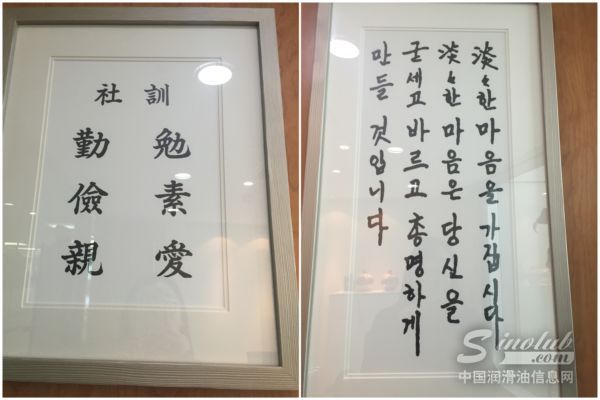 社 訓
勤 勉
儉 素
親 愛
淡々한 마음을 가집시다
淡々한 마음은 당신을
굳세고 바르고 총명하게
만들 것입니다
Sinolub
.com
中国润滑油信息网